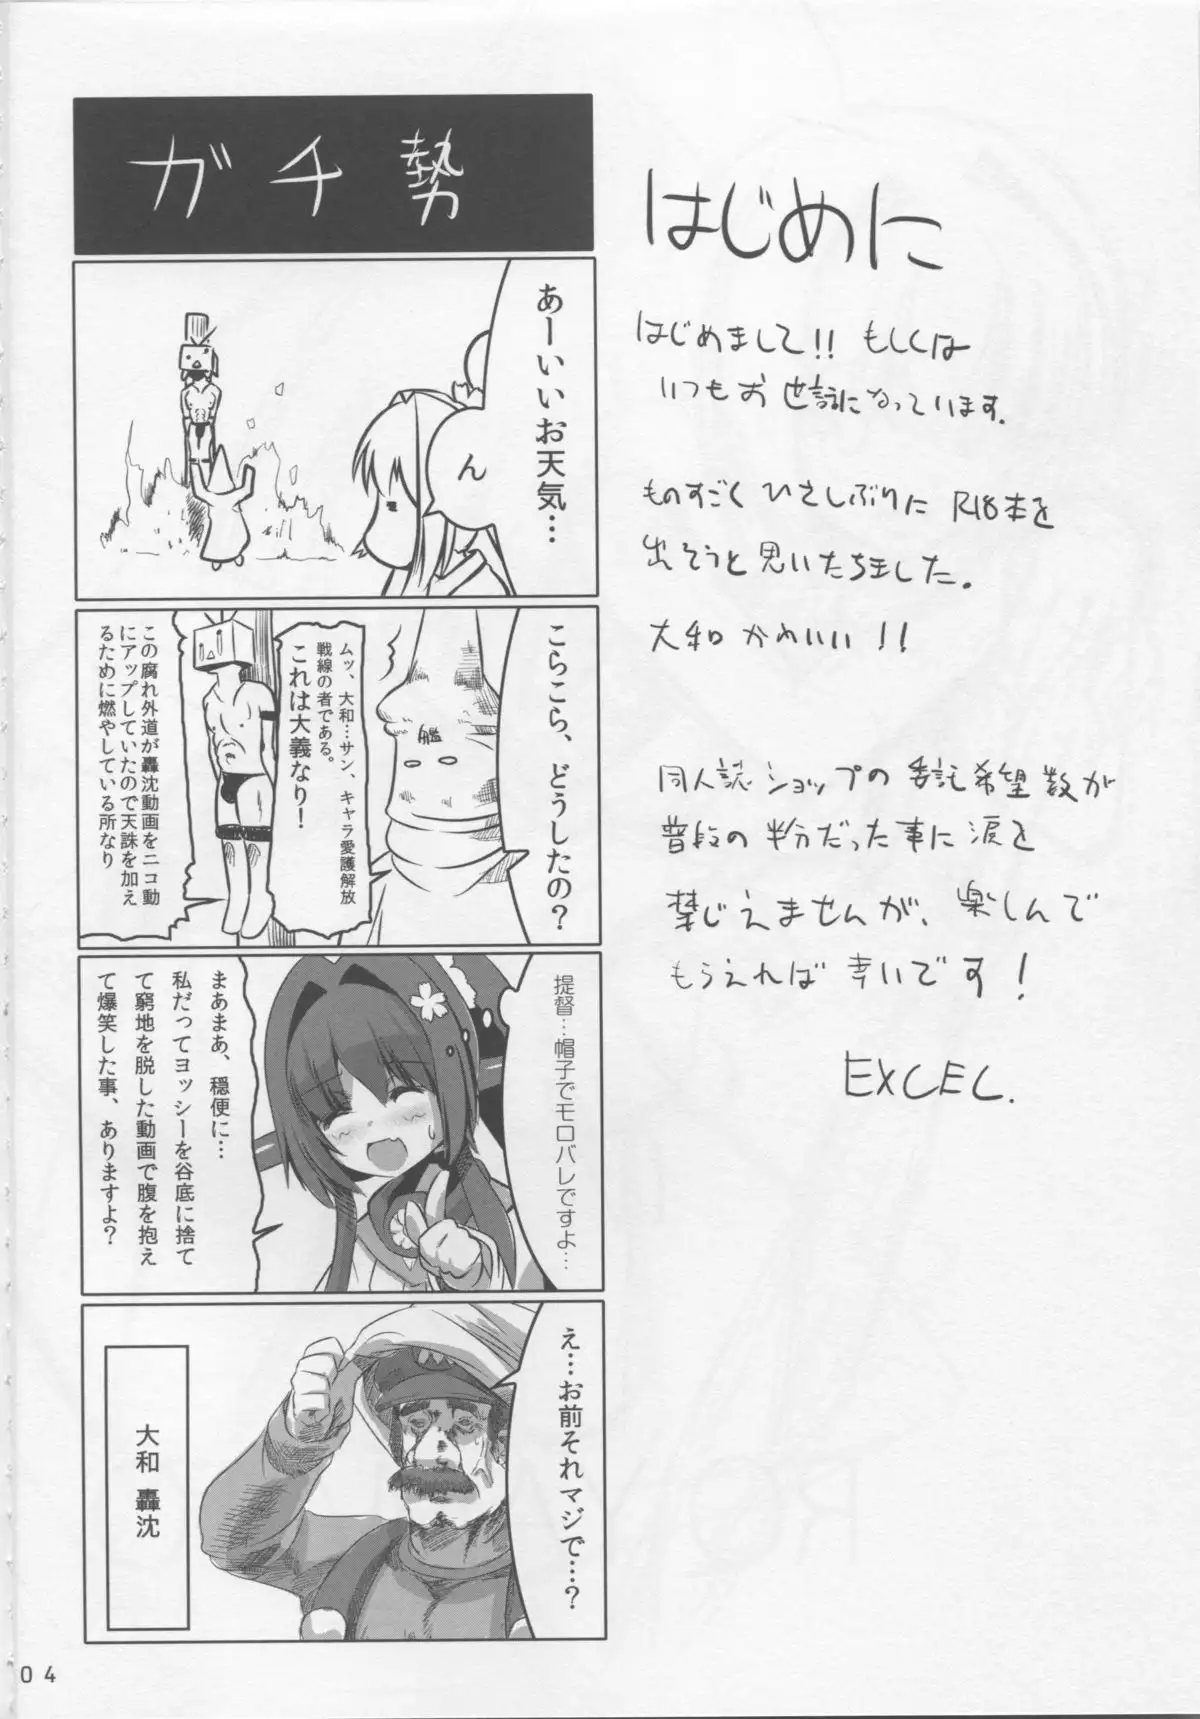 はじめに
はじめまして!! もしくは
いつもお世話になっています.
ものすごく ひさしぶりに R18本を
出そうと思いたちました。
大和 かわいい!!
同人誌ショップの委託希望数が
普段の半分だった事に涙を
禁じえませんが、楽しんで
もらえれば幸いです!
EXCEL.
ガチ勢
あーいいお天気…
ん
こらこら、どうしたの?
艦
ムッ、大和…サン、キャラ愛護解放
戦線の者である。
これは大義なり!
この腐れ外道が轟沈動画をニコ動
にアップしていたので天誅を加え
るために燃やしている所なり
提督…帽子でモロバレですよ…
まあまあ、穏便に…
私だってヨッシーを谷底に捨て
て窮地を脱した動画で腹を抱え
て爆笑した事、ありますよ?
え…お前それマジで…?
大和 轟沈
04